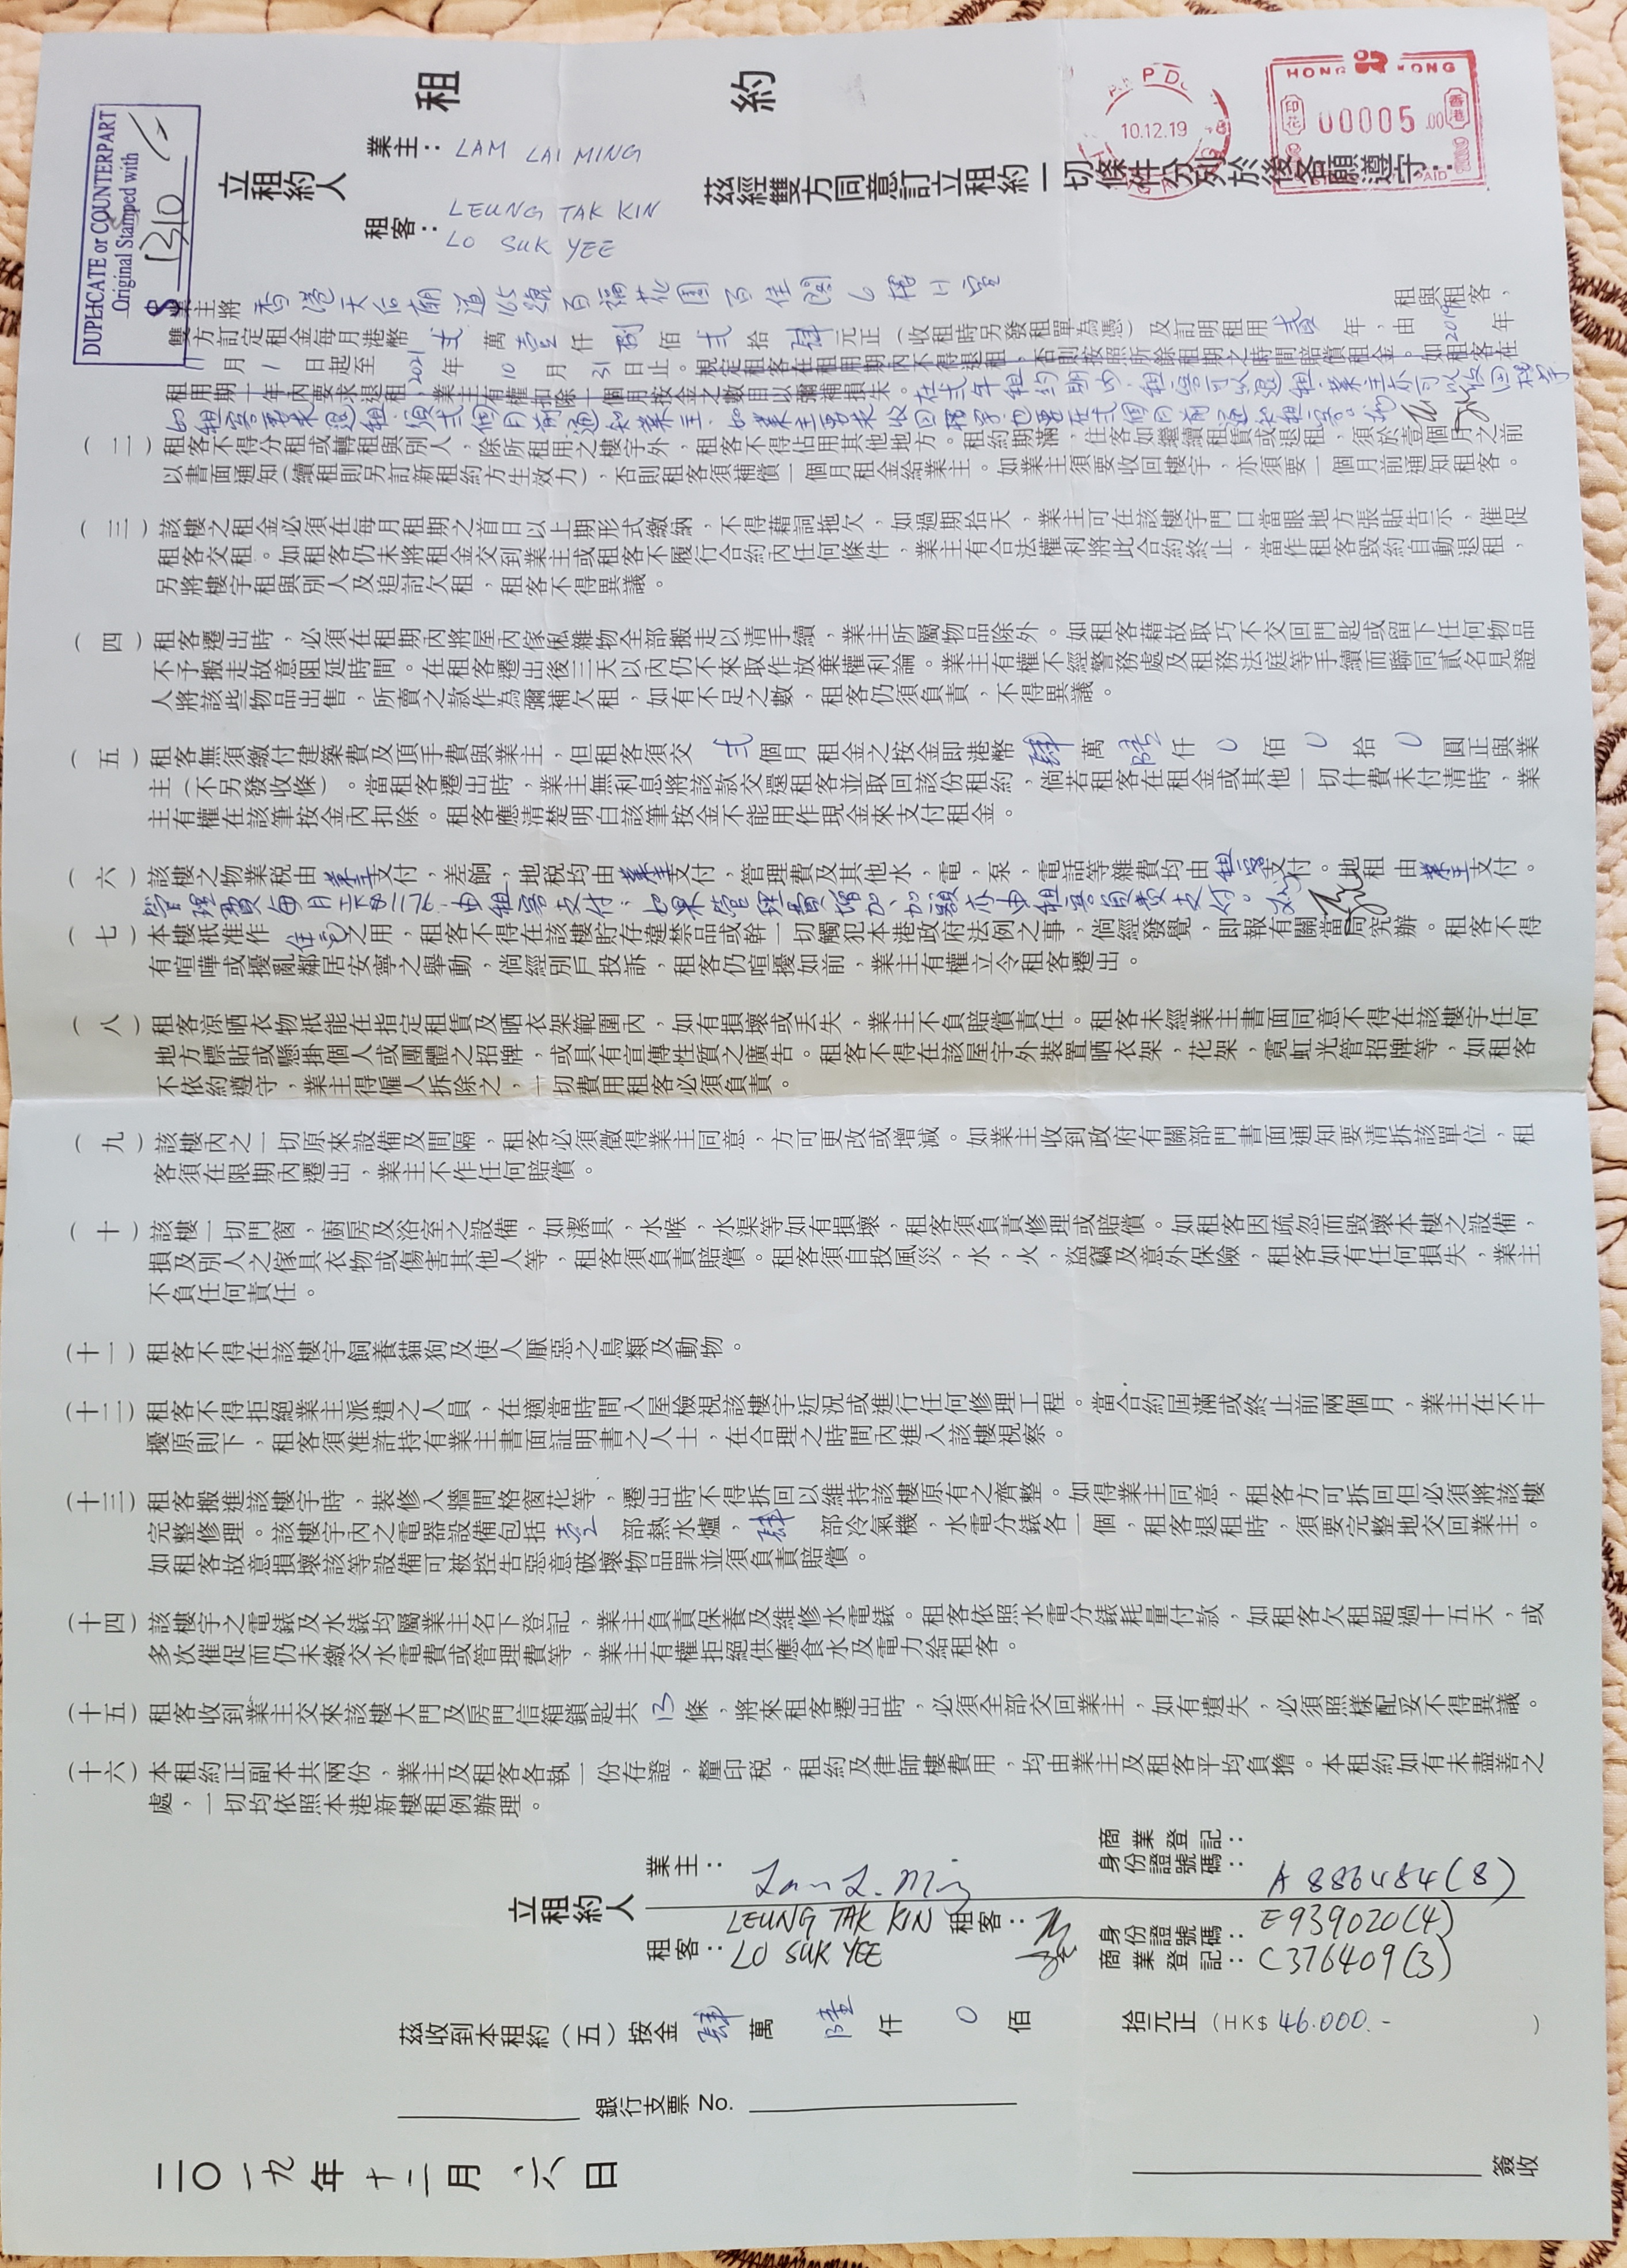 DUPLICATE or COUNTERPART
Original Stamped with
$ 1310
租約
立租約人
業主：LAM LAI MING
租客：LEUNG TAK KIN
LO SUK YEE
茲經雙方同意訂立租約一切條件分列於後各願遵守：
10.12.19
HONG KONG
印花
香港
00005.00
PAID
業主將 香港天后廟道165號百福花園百佳閣6樓H室 租與租客，
雙方訂定租金每月港幣 弍 萬 壹 仟 捌 佰 弍 拾 肆 元正（收租時另發租單為憑）及訂明租用 貳 年，由 2019 年
11 月 1 日起至 2021 年 10 月 31 日止。規定租客在租用期內不得退租，否則按照所餘租期之時間賠賞租金。如租客在
租用期十年內要求退租，業主有權扣除十個月按金之數目以彌補損失。在弍年租約期內，租客可以退租，業主亦可以收回樓宇
如租客要求退租，須弍個月前通知業主，如業主要求收回樓宇也要在弍個月前通知租客。
（二）租客不得分租或轉租與別人，除所租用之樓宇外，租客不得佔用其他地方。租約期滿，住客如繼續租賃或退租，須於壹個月之前
以書面通知（續租則另訂新租約方生效力），否則租客須補償一個月租金給業主。如業主須要收回樓宇，亦須要一個月前通知租客。
（三）該樓之租金必須在每月租期之首日以上期形式繳納，不得藉詞拖欠，如過期拾天，業主可在該樓宇門口當眼地方張貼告示，催促
租客交租。如租客仍未將租金交到業主或租客不履行合約內任何條件，業主有合法權利將此合約終止，當作租客毀約自動退租，
另將樓宇租與別人及追討欠租，租客不得異議。
（四）租客遷出時，必須在租期內將屋內傢俬雜物全部搬走以清手續，業主所屬物品除外。如租客藉故取巧不交回門匙或留下任何物品
不予搬走故意阻延時間。在租客遷出後三天以內仍不來取作放棄權利論。業主有權不經警務處及租務法庭等手續而聯同貳名見證
人將該些物品出售，所賣之款作為彌補欠租，如有不足之數，租客仍須負責，不得異議。
（五）租客無須繳付建築費及頂手費與業主，但租客須交 弍 個月 租金之按金即港幣 肆 萬 陸 仟 0 佰 0 拾 0 圓正與業
主（不另發收條）。當租客遷出時，業主無利息將該款交還租客並取回該份租約，倘若租客在租金或其他一切什費未付清時，業
主有權在該筆按金內扣除。租客應清楚明白該筆按金不能用作現金來支付租金。
（六）該樓之物業税由 業主 支付，差餉，地税均由 業主 支付，管理費及其他水，電，泵，電話等雜費均由 租客 支付。地租 由 業主 支付。
由租客支付；如果管理費增加、加額亦由租客負責支付。
（七）本樓祇准作 住宅 之用，租客不得在該樓貯存違禁品或幹一切觸犯本港政府法例之事，倘經發覺，即報有關當局究辦。租客不得
有喧嘩或擾亂鄰居安寧之舉動，倘經別戶投訴，租客仍喧擾如前，業主有權立令租客遷出。
（八）租客涼晒衣物祇能在指定租賃及晒衣架範圍內，如有損壞或丢失，業主不負賠償責任。租客未經業主書面同意不得在該樓宇任何
地方標貼或懸掛個人或團體之招牌，或具有宣傳性質之廣告。租客不得在該屋宇外裝置晒衣架，花架，霓虹光管招牌等，如租客
不依約遵守，業主得僱人拆除之，一切費用租客必須負責。
（九）該樓內之一切原來設備及間隔，租客必須徵得業主同意，方可更改或增減。如業主收到政府有關部門書面通知要清拆該單位，租
客須在限期內遷出，業主不作任何賠償。
（十）該樓一切門窗，廚房及浴室之設備，如潔具，水喉，水渠等如有損壞，租客須負責修理或賠償。如租客因疏忽而毀壞本樓之設備，
損及別人之傢具衣物或傷害其他人等，租客須負責賠償。租客須自投風災，水，火，盜竊及意外保險，租客如有任何損失，業主
不負任何責任。
（十一）租客不得在該樓宇飼養貓狗及使人厭惡之鳥類及動物。
（十二）租客不得拒絕業主派遣之人員，在適當時間入屋檢視該樓宇近況或進行任何修理工程。當合約屆滿或終止前兩個月，業主在不干
擾原則下，租客須准許持有業主書面証明書之人士，在合理之時間內進入該樓視察。
（十三）租客搬進該樓宇時，裝修入牆間格窗花等，遷出時不得拆回以維持該樓原有之齊整。如得業主同意，租客方可拆回但必須將該樓
完整修理。該樓宇內之電器設備包括 壹 部熱水爐，肆 部冷氣機，水電分錶各一個，租客退租時，須要完整地交回業主。
如租客故意損壞該等設備可被控告惡意破壞物品罪並須負責賠償。
（十四）該樓宇之電錶及水錶均屬業主名下登記，業主負責保養及維修水電錶。租客依照水電分錶耗量付款，如租客欠租超過十五天，或
多次催促而仍未繳交水電費或管理費等，業主有權拒絕供應食水及電力給租客。
（十五）租客收到業主交來該樓大門及房門信箱鎖匙共 13 條，將來租客遷出時，必須全部交回業主，如有遺失，必須照樣配妥不得異議。
（十六）本租約正副本共兩份，業主及租客各執一份存證，釐印税，租約及律師樓費用，均由業主及租客平均負擔。本租約如有未盡善之
處，一切均依照本港新樓租例辦理。
立租約人
業主： Lam L. Ming
商業登記：
身份證號碼： A886484(8)
租客： LEUNG TAK KIN 租客：
LO SUK YEE
身份證號碼： E939020(4)
商業登記： C376409(3)
茲收到本租約（五）按金 肆 萬 陸 仟 0 佰 拾元正（HK$ 46.000.- ）
銀行支票 No.
簽收
二〇一九年十二月六日